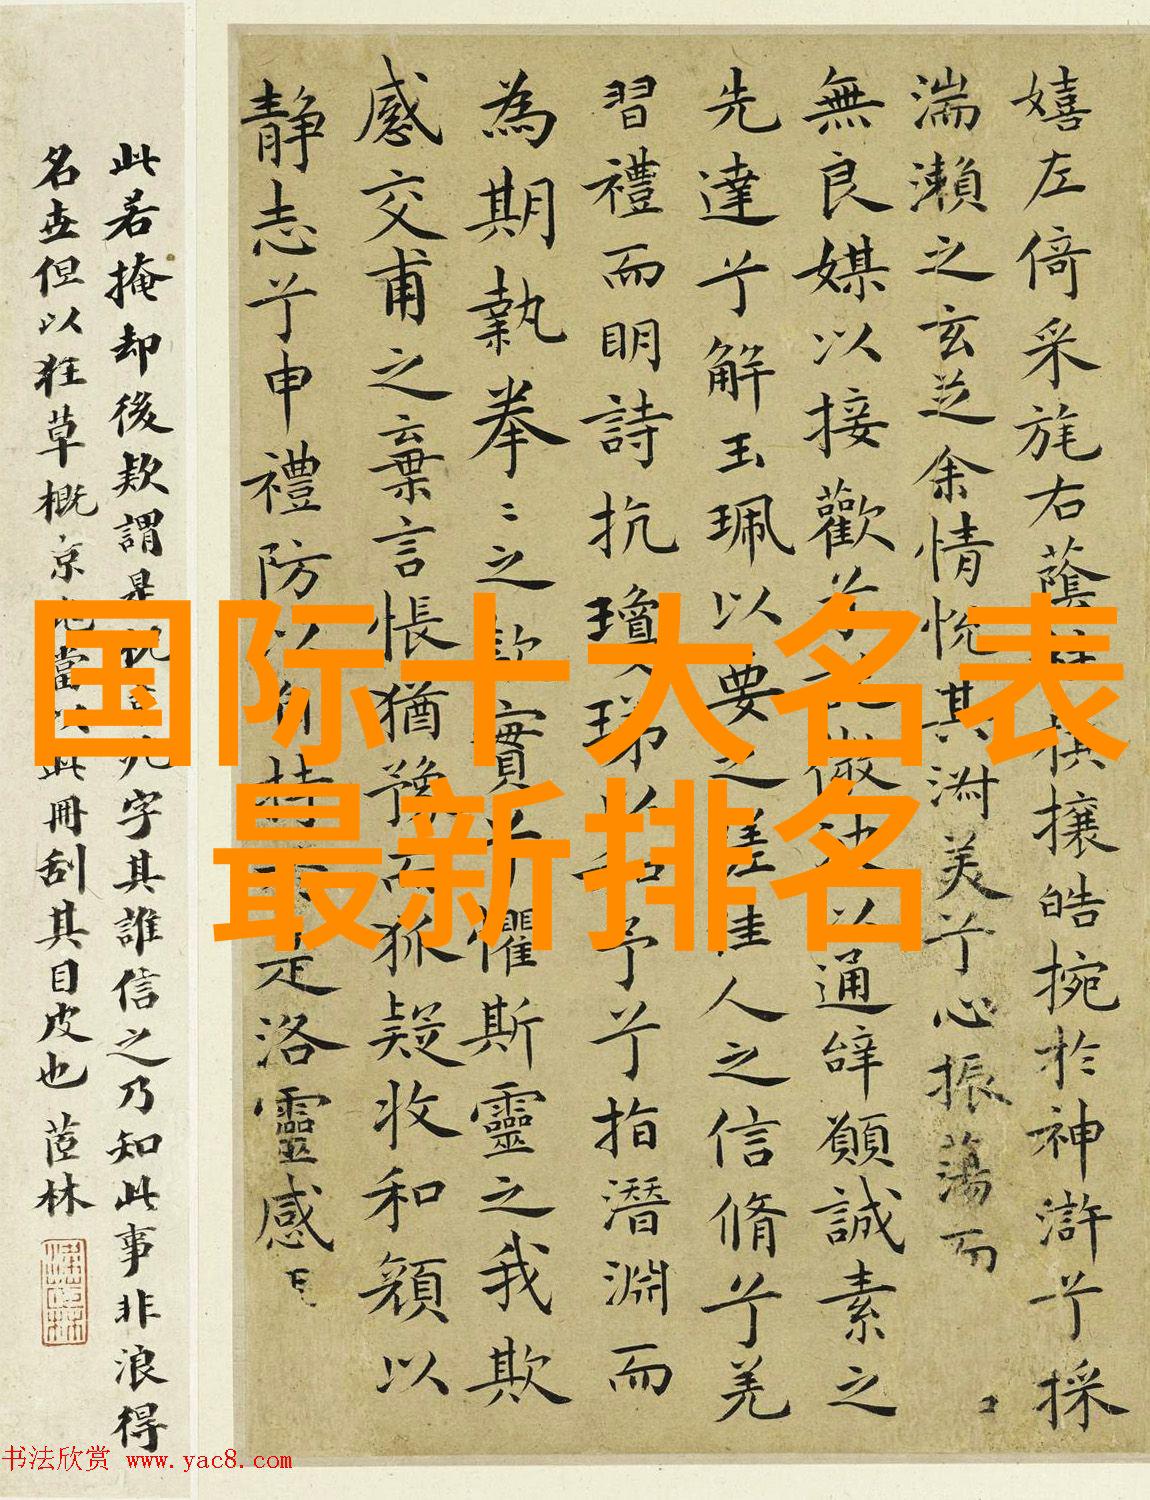 嬉左倚采旄右蔭桂旗攘皓捥於神滸兮採
湍瀨之玄芝余情悅其淑美兮心振蕩而
無良媒以接歡兮微波以通辭願誠素之
先達兮解玉珮以要之嗟佳人之信脩兮羌
習禮而明詩抗瓊珶以和予兮指潛淵而
為期執拳〻之款實兮懼斯靈之我欺
感交甫之棄言悵猶豫而狐疑收和顏以
靜志兮申禮防以自持於是洛靈感
此若掩却後款謂是祝京兆字其誰信之乃知此事非浪得
名世但以狂草概京兆當以此冊刮其目皮也 茝林
国际十大名表
最新排名
书法欣赏 www.yac8.com